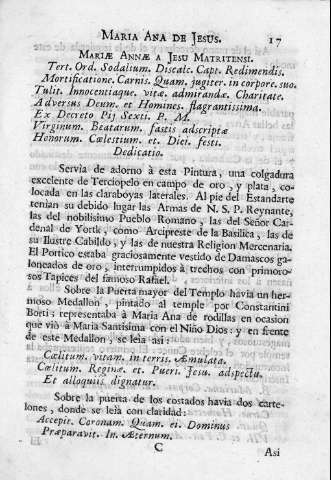 MARIA ANA DE JESUS. 17
MARIÆ ANNÆ A JESU MATRITENSI.
Tert. Ord. Sodalium. Discalc. Capt. Redimendis.
Mortificatione. Carnis. Quam. jugiter. in corpore. suo.
Tulit. Innocentiaque. vitæ. admirandæ. Charitate.
Adversus Deum. et Homines. flagrantissima.
Ex Decreto Pij Sexti. P. M.
Virginum. Beatarum. fastis adscriptæ
Honorum. Cœlestium. et. Diei. festi.
Dedicatio.
Servia de adorno à esta Pintura, una colgadura
excelente de Terciopelo en campo de oro, y plata, co-
locada en las claraboyas laterales. Al pie del Estandarte
tenian su debido lugar las Armas de N. S. P. Reynante,
las del nobilisimo Pueblo Romano, las del Señor Car-
denal de Yortk, como Arcipreste de la Basilica, las de
su Ilustre Cabildo, y las de nuestra Religion Mercenaria.
El Portico estaba graciosamente vestido de Damascos ga-
loneados de oro, interrumpidos à trechos con primoro-
sos Tapices del famoso Rafael.
Sobre la Puerta mayor del Templo havia un her-
moso Medallon, pintado al temple por Constantini
Borti: representaba à Maria Ana de rodillas en ocasion
que viò à Maria Santisima con el Niño Dios: y en frente
de este Medallon, se leìa asi:
Cælitum. vitam. in terris. Æmulata.
Cœlitum. Reginæ. et. Pueri. Jesu. adspectu.
Et alloquiis dignatur.
Sobre la puerta de los costados havia dos carte-
lones, donde se leìa con claridad:
Accepit. Coronam. Quam. ei. Dominus
Præparavit. In. Æternum.
C Asi